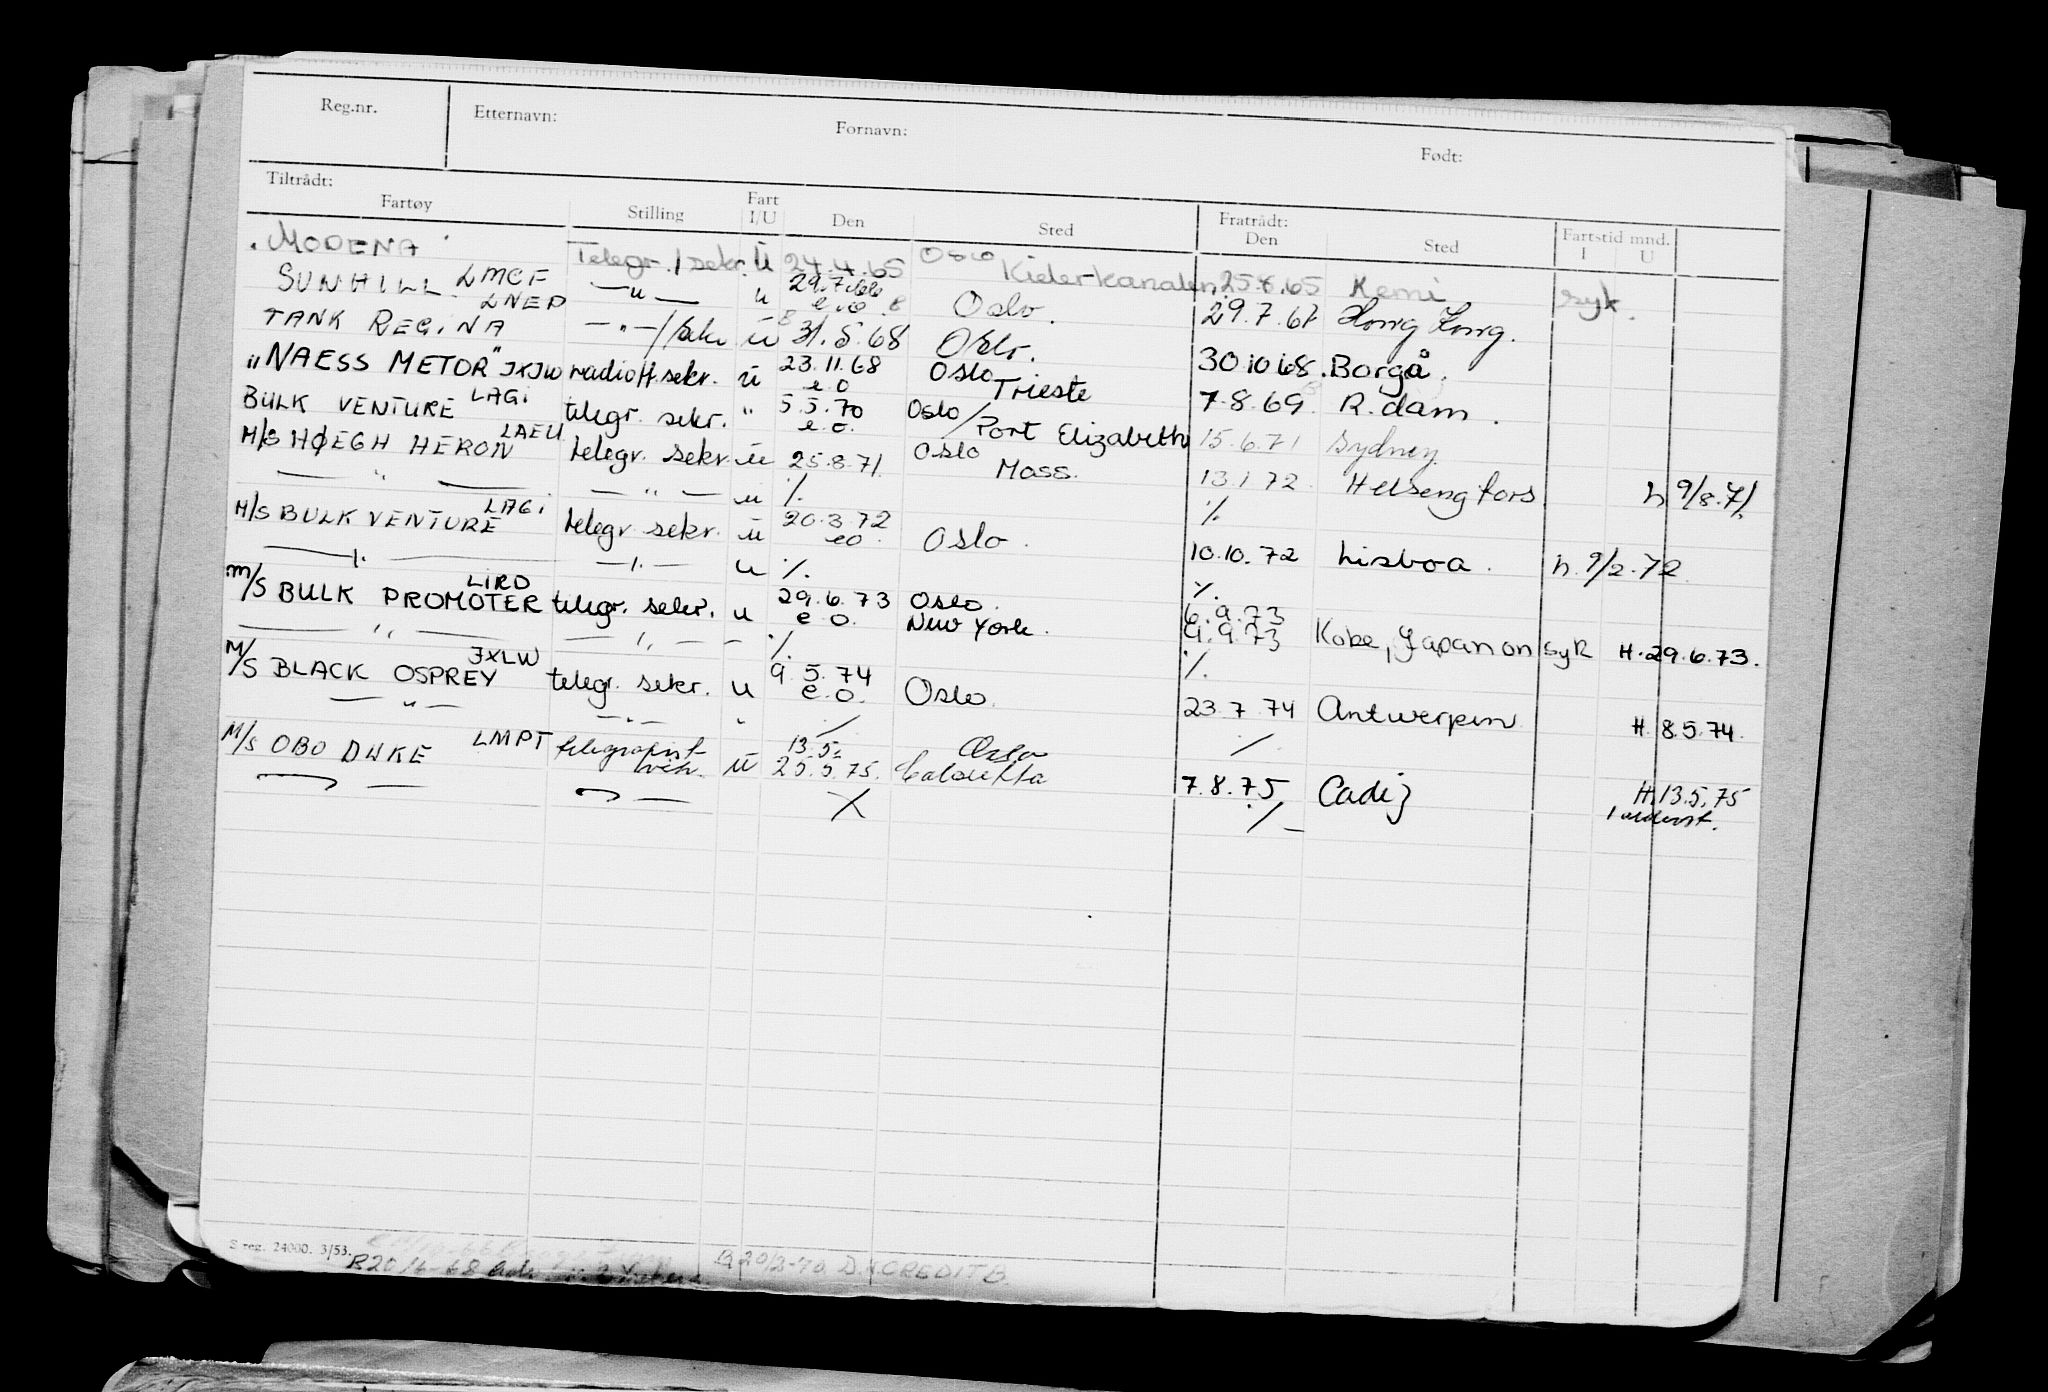 Reg.nr. Etternavn: Fornavn: Født:
Tiltrådt: Fratrådt:
Fartøy Stilling Fart I/U Den Sted Den Sted Fartstid mnd. I U
"MODENA" Telegr./sekr. U 24.4.65 Oslo Kielerkanalen 25.8.65 Kemi syk.
SUNHILL LMCF —"— u 29.7.66 e.o. Oslo. 29.7.67 Hong Kong.
TANK REGINA LNEP —"—/sekr u 31.8.68 Oslo. 30.10.68. Borgå.
"NAESS METOR" JXJW radioff.sekr. u 23.11.68 e.o Oslo Trieste 7.8.69. R.dam.
BULK VENTURE LAGI telegr. sekr. " 5.5.70 e.o. Oslo/Port Elizabeth 15.6.71 Sydney.
M/S HØEGH HERON LAEU telegr. sekr. u 25.8.71. Oslo Moss. 13.1.72. Helsengfors. h 9/8.71.
—"— —"— u ·/. ·/.
M/S BULK VENTURE LAGI telegr. sekr. u 20.3.72 eo. Oslo. 10.10.72 Lisboa. h. 9/2.72.
—"— —"— u ·/. ·/.
M/S BULK PROMOTER LIRD telegr. sekr. u 29.6.73 e.o. Oslo. New York. 6.9.73 9.9.73 Kobe, Japan on syk H.29.6.73.
—"— —"— ·/. ·/.
M/S BLACK OSPREY JXLW telegr. sekr. u 9.5.74 e.o. Oslo. 23.7.74 Antwerpen H. 8.5.74.
—"— —"— " ·/. ·/.
M/S OBO DUKE LMPT telegrafist u 13.5. 25.5.75. Oslo Calcutta 7.8.75 Cadiz H.13.5.75
·/. ·/.
S reg. 24000. 3/53.
R20/6-68 R 20/2-70 D.N.CREDITB.